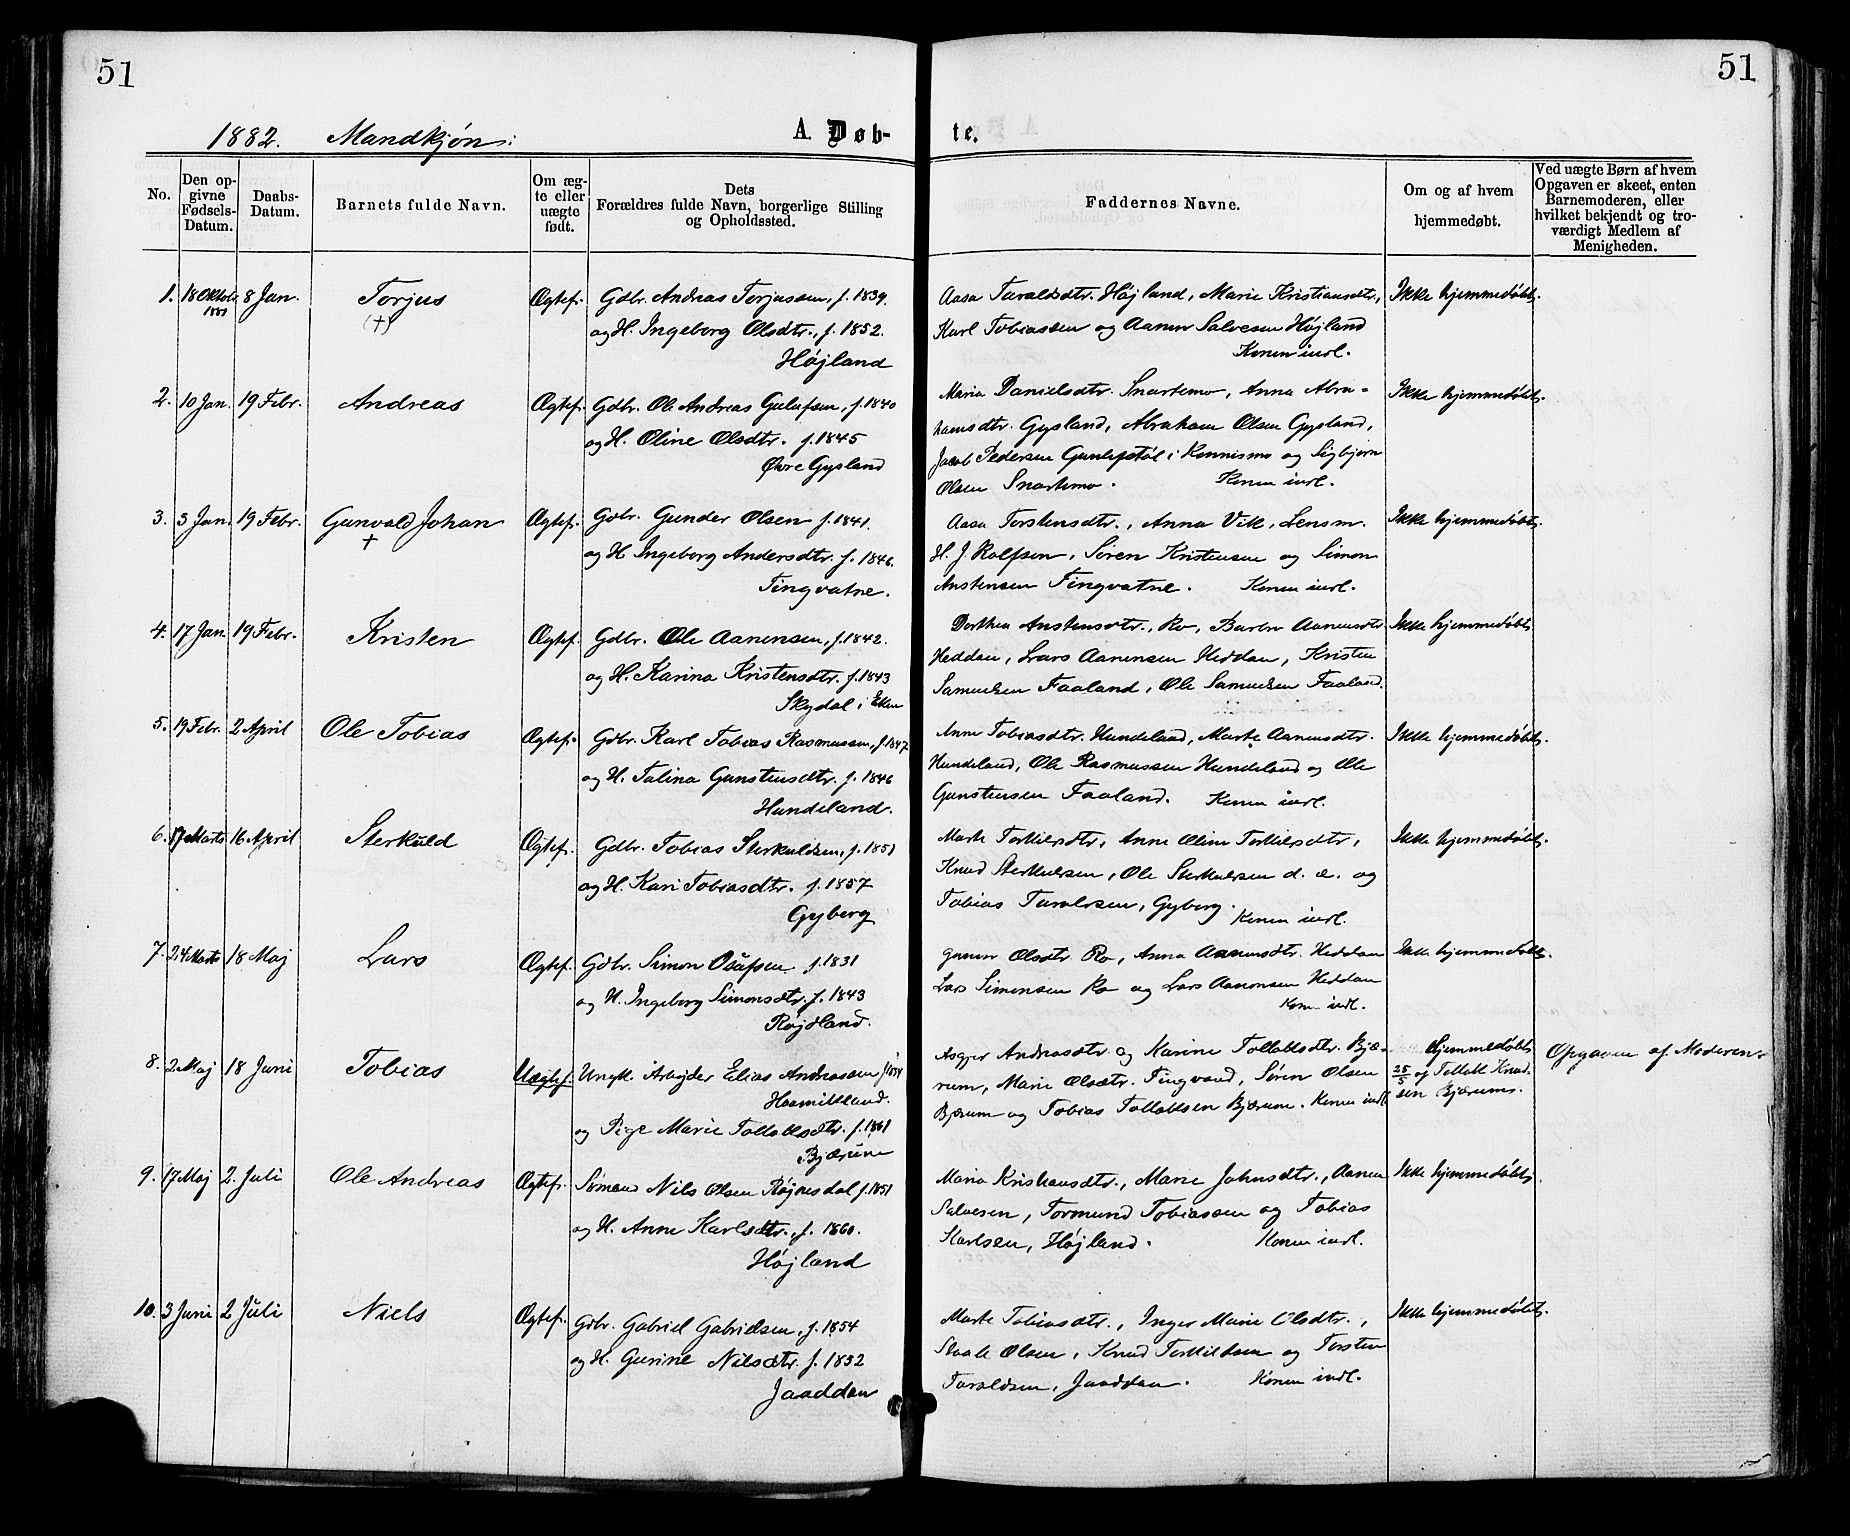 51
51
1882. Mandkjøn:
A. Døb-
te.
No.
Den opgivne Fødsels-Datum.
Daabs-Datum.
Barnets fulde Navn.
Om ægte eller uægte født.
Dets Forældres fulde Navn, borgerlige Stilling og Opholdssted.
Faddernes Navne.
Om og af hvem hjemmedøbt.
Ved uægte Børn af hvem Opgaven er skeet, enten Barnemoderen, eller hvilket bekjendt og troværdigt Medlem af Menigheden.
1. 18 Oktob. 1881 8 Jan. Torjus (+) Ægtef. Gdbr. Andreas Torjussen, f. 1839.
og H. Ingeborg Olsdtr., f. 1852.
Højland
Aasa Taraldsdtr. Højland, Marie Kristiansdtr.,
Karl Tobiassen og Aanen Salvesen Højland
Konen indl.
Ikke hjemmedøbt.
2. 10 Jan. 19 Febr. Andreas Ægtef. Gdbr. Ole Andreas Gulufsen, f. 1840
og H. Oline Olsdtr. f. 1845
Øvre Gysland
Maria Danielsdtr. Snartemo, Anna Abra-
hamsdtr. Gysland, Abraham Olsen Gysland,
Jacob Pedersen Gunlefstøl i Konnismo og Sigbjørn
Olsen Snartemo. Konen indl.
Ikke hjemmedøbt.
3. 3 Jan. 19 Febr. Gunvald Johan + Ægtef. Gdbr. Gunder Olsen f. 1841.
og H. Ingeborg Andersdtr. f. 1846.
Tingvatne.
Aasa Torstensdtr., Anna Vik, Lensm.
H. J. Rolfsen, Søren Kristensen og Simon
Anstensen Tingvatne. Konen indl.
Ikke hjemmedøbt.
4. 17 Jan. 19 Febr. Kristen Ægtef. Gdbr. Ole Aanensen, f. 1842.
og H. Karina Kristensdtr. f. 1843
Skydal i Eken
Dorthea Anstensdtr., Ro, Barbro Aanensdtr.
Heddan, Lars Aanensen Heddan, Kristen
Samuelsen Faaland, Ole Samuelsen Faaland.
Ikke hjemmedøbt.
5. 19 Febr. 2 April Ole Tobias Ægtef. Gdbr. Karl Tobias Rasmussen, f. 1847
og H. Talina Gunstensdtr. f. 1846
Hundeland.
Anne Tobiasdtr. Hundeland, Marte Aanensdtr.
Hundeland, Ole Rasmussen Hundeland og Ole
Gunstensen Faaland. Konen indl.
Ikke hjemmedøbt.
6. 17 Marts 16 April Sterkuld Ægtef. Gdbr. Tobias Sterkuldsen, f. 1851
og H. Kari Tobiasdtr. f. 1857
Gyberg
Marte Torkilsdtr., Anne Oline Torkilsdtr.,
Knud Sterkulsen, Ole Sterkulsen d. æ. og
Tobias Taralssen, Gyberg. Konen indl.
Ikke hjemmedøbt.
7. 24 Marts 18 Maj Lars Ægtef. Gdbr. Simon Olufsen f. 1831
og H. Ingeborg Simonsdtr. f. 1843
Røjdland.
Gunner Olsdtr. Ro, Anna Aanensdtr. Heddan
Lars Simonsen Ro og Lars Aanensen Heddan
Kon. indl.
Ikke hjemmedøbt.
8. 2 Maj 18 Juni Tobias Uægtef. Ungk. Arbejder Elias Andreassen f. 1854
Haamikland.
og Pige Marie Tollaksdtr. f. 1861
Bjærum
Asgjer Andreasdtr. og Karine Tollaksdtr. Bjæ-
rum, Marie Olsdtr. Tingvand, Søren Olsen
Bjærum og Tobias Tollaksen Bjærum. Konen indl.
Hjemmedøbt
25/5 af Tollak Knud-
sen Bjærum.
Opgaven af Moderen.
9. 17 Maj 2. Juli Ole Andreas Ægtef. Sømand Nils Olsen Røjnesdal f. 1851
og H. Anne Karlsdtr., f. 1860.
Højland
Maria Kristiansdtr., Marie Johnsdtr., Aanen
Salvesen, Tormund Tobiassen og Tobias
Karlsen, Højland. Konen indl.
Ikke hjemmedøbt.
10. 3 Juni 2 Juli Niels Ægtef. Gdbr. Gabriel Gabrielsen, f. 1854
og H. Gurine Nilsdtr. f. 1832
Jaaddan
Marte Tobiasdtr., Inger Marie Olsdtr.,
Staale Olsen, Knud Torkildsen og Torsten
Taraldsen, Jaaddan. Konen indl.
Ikke hjemmedøbt.